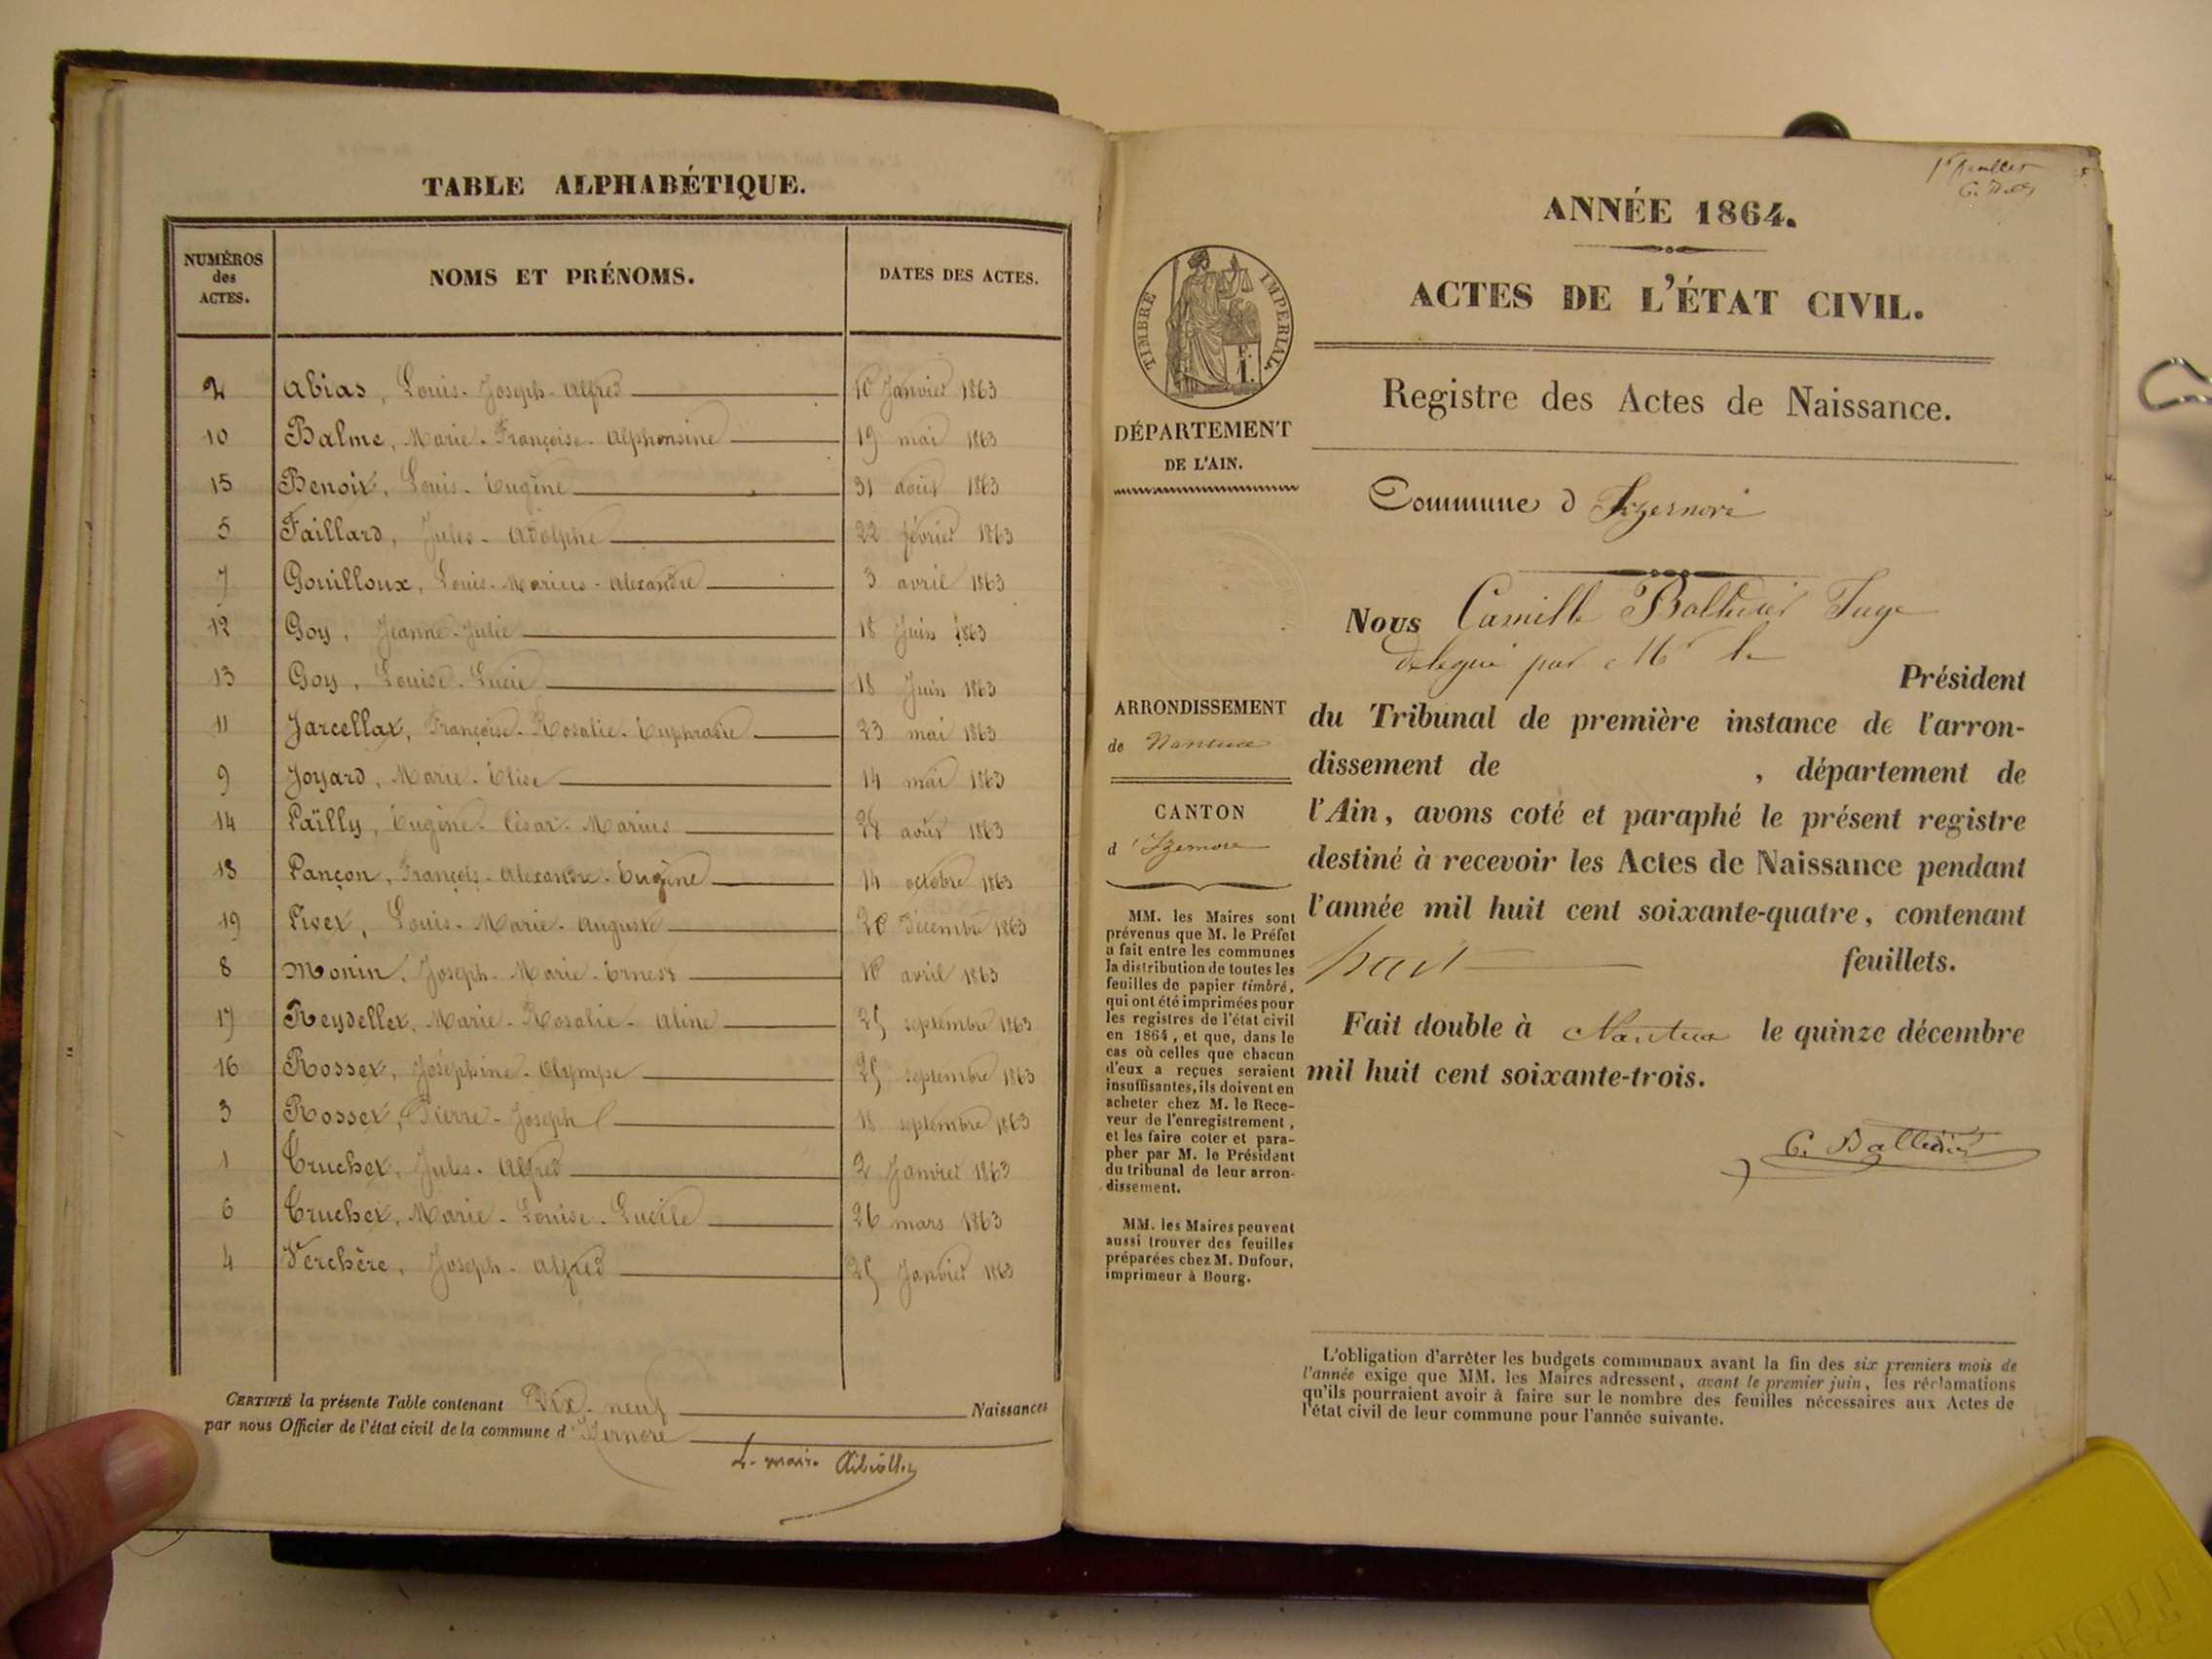 TABLE ALPHABÉTIQUE.
NUMÉROS des ACTES. NOMS ET PRÉNOMS. DATES DES ACTES.
2 Abias, Louis-Joseph-Alfred 10 Janvier 1863
10 Balme, Marie-Françoise-Alphonsine 19 mai 1863
15 Benoit, Louis-Eugène 31 août 1863
5 Faillard, Jules-Adolphe 22 février 1863
7 Gouilloux, Louis-Marius-Alexandre 3 avril 1863
12 Goy, Jeanne-Julie 18 Juin 1863
13 Goy, Louise-Lucie 18 Juin 1863
11 Jarcellat, Françoise-Rosalie-Euphrasie 23 mai 1863
9 Joyard, Marie-Elise 14 mai 1863
14 Pailly, Eugène-César-Marius 28 août 1863
18 Pançon, François-Alexandre-Eugène 14 octobre 1863
19 Pivet, Louis-Marie-Auguste 20 décembre 1863
8 Monin, Joseph-Marie-Ernest 10 avril 1863
17 Reydellet, Marie-Rosalie-Aline 25 septembre 1863
16 Rosset, Joséphine-Olympe 25 septembre 1863
3 Rosset, Pierre-Joseph 18 septembre 1863
1 Truchet, Jules-Alfred 2 Janvier 1863
6 Truchet, Marie-Louise-Lucile 26 mars 1863
4 Verchère, Joseph-Alfred 25 Janvier 1863
CERTIFIÉ la présente Table contenant Dix-neuf Naissances
par nous Officier de l'état civil de la commune d'Izernore
Le maire
1er feuillet
ANNÉE 1864.
ACTES DE L'ÉTAT CIVIL.
TIMBRE IMPERIAL
Registre des Actes de Naissance.
DÉPARTEMENT
DE L'AIN.
Commune d'Izernore
Nous Camille Balleidier Juge
délégué par Mr le
Président
du Tribunal de première instance de l'arron-
dissement de , département de
l'Ain, avons coté et paraphé le présent registre
destiné à recevoir les Actes de Naissance pendant
l'année mil huit cent soixante-quatre, contenant
huit feuillets.
Fait double à Nantua le quinze décembre
mil huit cent soixante-trois.
ARRONDISSEMENT
de Nantua
CANTON
d'Izernore
MM. les Maires sont
prévenus que M. le Préfet
a fait entre les communes
la distribution de toutes les
feuilles de papier timbré,
qui ont été imprimées pour
les registres de l'état civil
en 1864, et que, dans le
cas où celles que chacun
d'eux a reçues seraient
insuffisantes, ils doivent en
acheter chez M. le Rece-
veur de l'enregistrement,
et les faire coter et para-
pher par M. le Président
du tribunal de leur arron-
dissement.
MM. les Maires peuvent
aussi trouver des feuilles
préparées chez M. Dufour,
imprimeur à Bourg.
L'obligation d'arrêter les budgets communaux avant la fin des six premiers mois de
l'année exige que MM. les Maires adressent, avant le premier juin, les réclamations
qu'ils pourraient avoir à faire sur le nombre des feuilles nécessaires aux Actes de
l'état civil de leur commune pour l'année suivante.